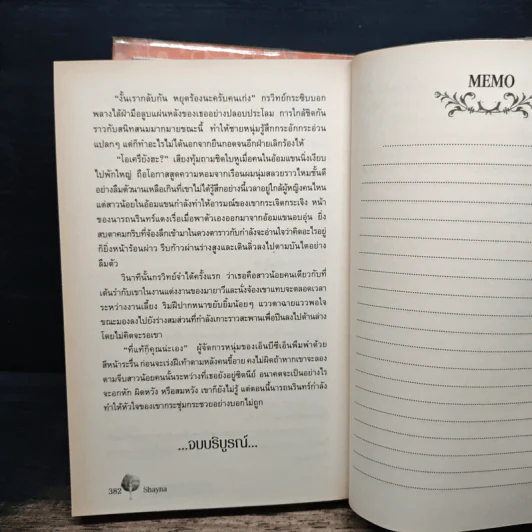 "งั้นเรากลับกัน หยุดร้องนะครับคนเก่ง" กรวิทย์กระซิบบอก
พลางใช้ฝ่ามือลูบแผ่นหลังของเธออย่างปลอบประโลม การใกล้ชิดกัน
ราวกับสนิทสนมมากมายขณะนี้ ทำให้ชายหนุ่มรู้สึกกระอักกระอ่วน
แปลกๆ แต่ก็ทำอะไรไม่ได้นอกจากยืนกอดจนอีกฝ่ายเลิกร้องไห้
"โอเครึยังฮะ?" เสียงทุ้มถามชิดใบหูเมื่อคนในอ้อมแขนนิ่งเงียบ
ไปพักใหญ่ ถือโอกาสสูดความหอมจากเรือนผมนุ่มสลวยราวไหมชั้นดี
อย่างลืมตัวนานเหลือเกินที่เขาไม่ได้รู้สึกอย่างนี้เวลาอยู่ใกล้ผู้หญิงคนไหน
แต่สาวน้อยในอ้อมแขนกำลังทำให้อารมณ์ของเขากระเจิดกระเจิง หน้า
ของนารถนรินทร์แดงเรื่อเมื่อพาตัวเองออกมาจากอ้อมแขนอบอุ่น ยิ่ง
สบตาคมกริบที่จ้องลึกเข้ามาในดวงตาราวกับกำลังจะอ่านใจว่าคิดอะไรอยู่
ก็ยิ่งหน้าร้อนผ่าว รีบก้าวผ่านร่างสูงและเดินลิ่วลงไปตามบันไดอย่าง
ลืมตัว
วินาทีนั้นกรวิทย์จำได้ครั้งแรก ว่าเธอคือสาวน้อยคนเดียวกับที่
เต้นรำกับเขาในงานแต่งงานของมายาวีและนั่งจ้องเขาแทบจะตลอดเวลา
ระหว่างงานเลี้ยง ริมฝีปากหนาขยับยิ้มน้อยๆ แววตาฉายแววพอใจ
ขณะมองลงไปยังร่างสมส่วนที่กำลังเกาะราวสะพานเพื่อปีนลงไปด้านล่าง
โดยไม่คิดจะรอเขา
"ที่แท้ก็คุณน่ะเอง" ผู้จัดการหนุ่มของเอ็นบีซีเอ็นพึมพำด้วย
สีหน้าระรื่น ก่อนจะเร่งฝีเท้าตามหลังคนขี้อาย คงไม่ผิดถ้าหากเขาจะลอง
ตามจีบสาวน้อยคนนั้นระหว่างที่เธอยังอยู่ซิดนีย์ อนาคตจะเป็นอย่างไร
จะอกหัก ผิดหวัง หรือสมหวัง เขาก็ยังไม่รู้ แต่ตอนนี้นารถนรินทร์กำลัง
ทำให้หัวใจของเขากระชุ่มกระชวยอย่างบอกไม่ถูก
...จบบริบูรณ์...
382 Shayna
MEMO